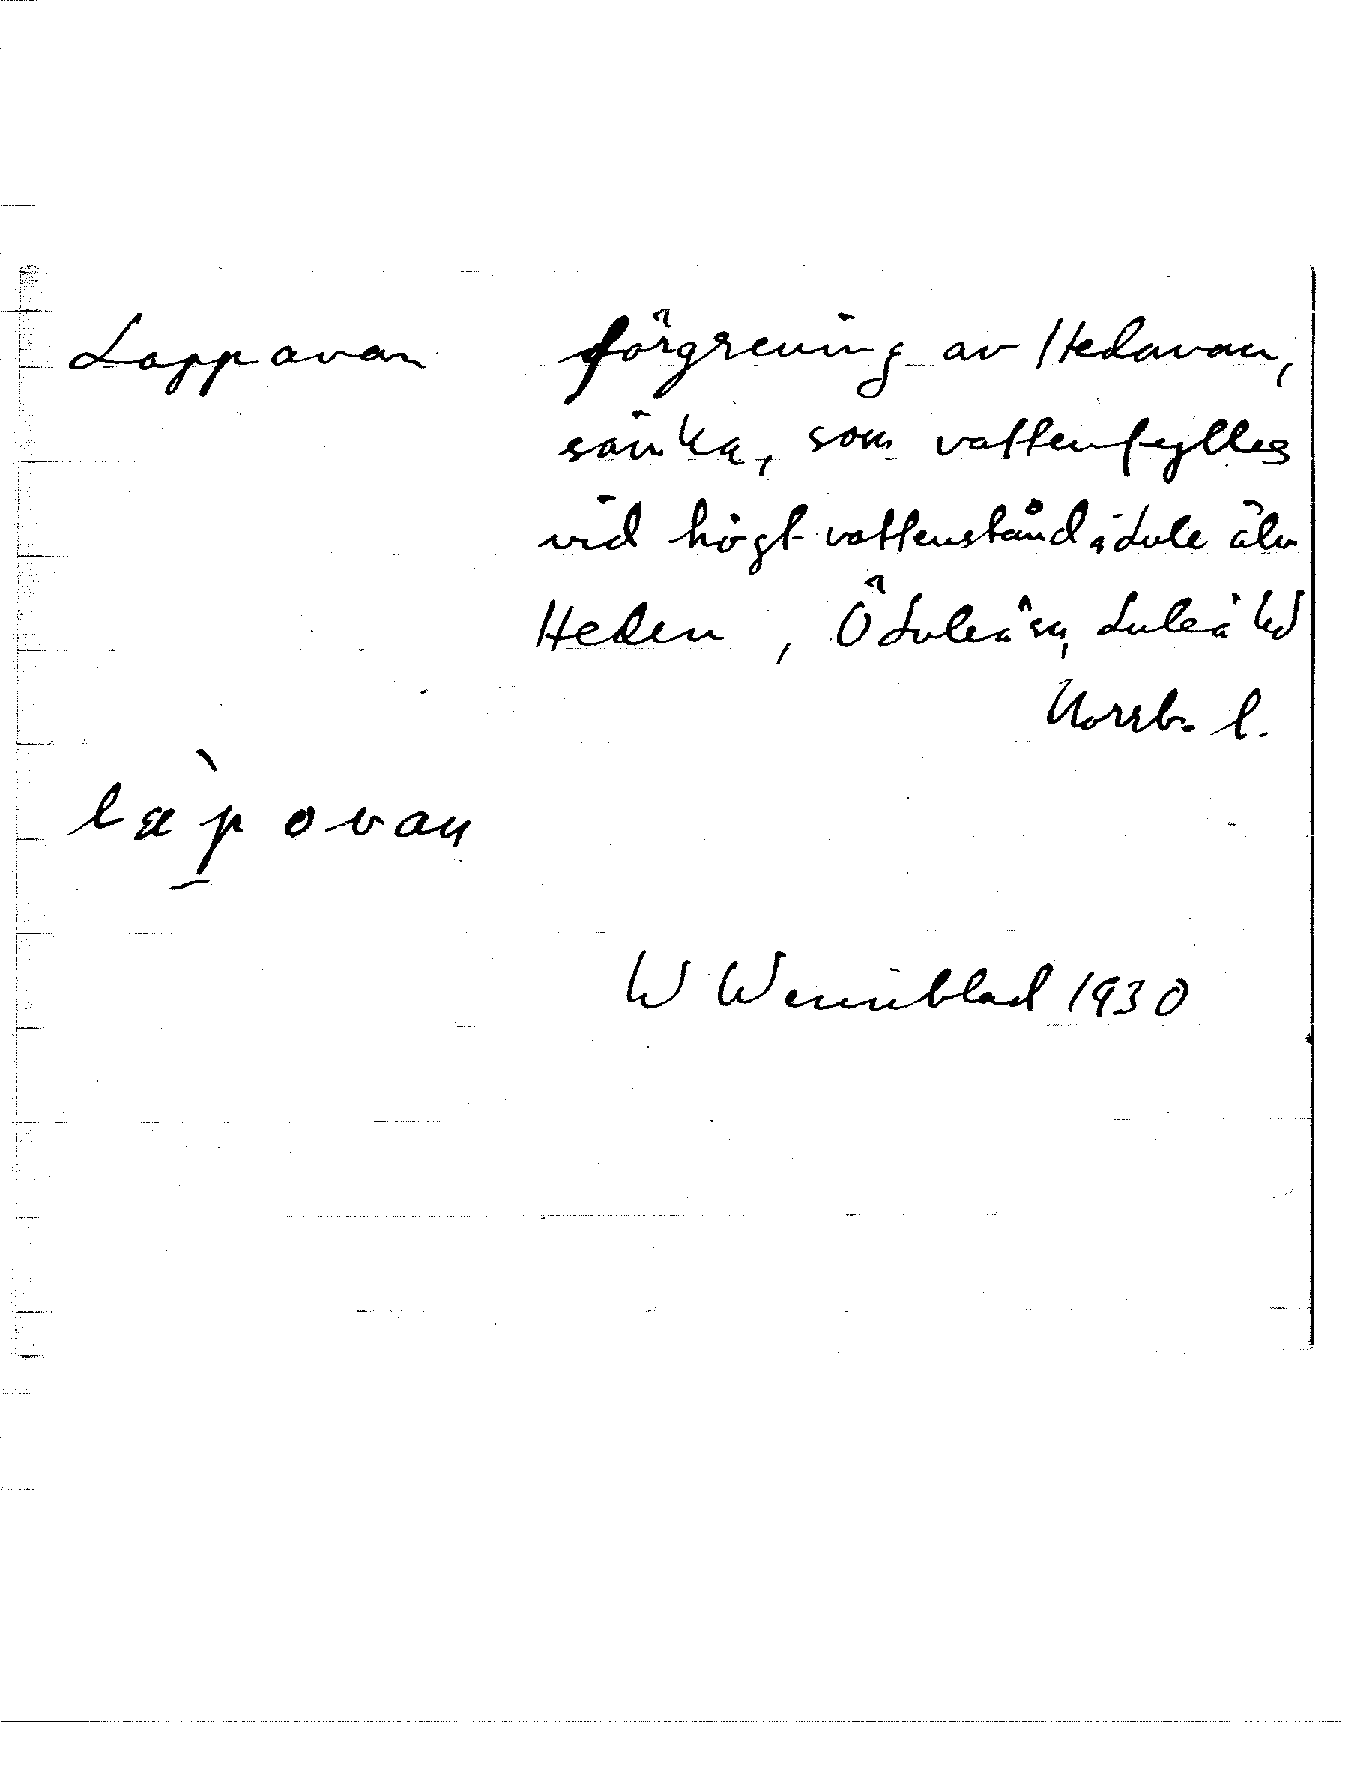 Lappavan förgrening av Hedavan,
sänka, som vattenfylles
vid högt vattenstånd i Lule älv
Heden, Ö Luleå sn, Luleå hd
Norrb. l.
læp̀ovan
W Wennblad 1930